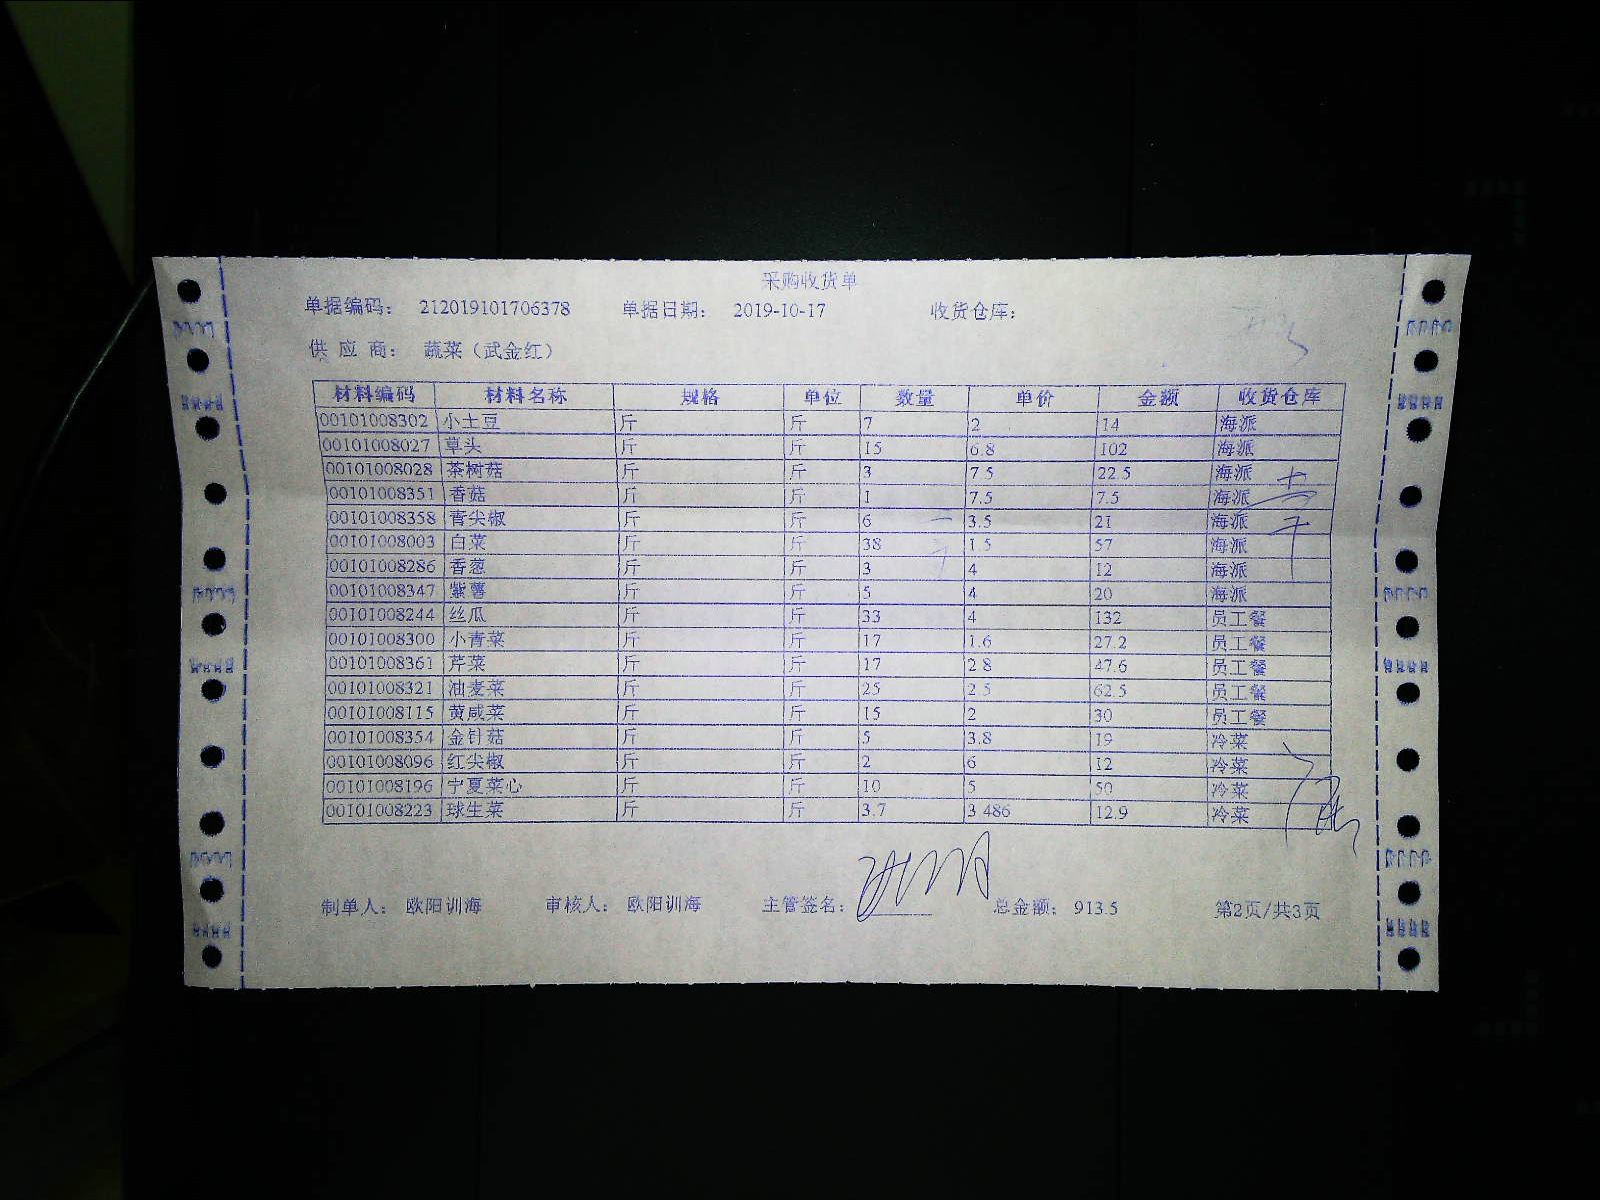 采购收货单
单据编码： 212019101706378 单据日期： 2019-10-17 收货仓库：
供 应 商： 蔬菜（武金红）
材料编码 材料名称 规格 单位 数量 单价 金额 收货仓库
00101008302 小土豆 斤 斤 7 2 14 海派
00101008027 草头 斤 斤 15 6.8 102 海派
00101008028 茶树菇 斤 斤 3 7.5 22.5 海派
00101008351 香菇 斤 斤 1 7.5 7.5 海派
00101008358 青尖椒 斤 斤 6 3.5 21 海派
00101008003 白菜 斤 斤 38 1.5 57 海派
00101008286 香葱 斤 斤 3 4 12 海派
00101008347 紫薯 斤 斤 5 4 20 海派
00101008244 丝瓜 斤 斤 33 4 132 员工餐
00101008300 小青菜 斤 斤 17 1.6 27.2 员工餐
00101008361 芹菜 斤 斤 17 2.8 47.6 员工餐
00101008321 油麦菜 斤 斤 25 2.5 62.5 员工餐
00101008115 黄咸菜 斤 斤 15 2 30 员工餐
00101008354 金针菇 斤 斤 5 3.8 19 冷菜
00101008096 红尖椒 斤 斤 2 6 12 冷菜
00101008196 宁夏菜心 斤 斤 10 5 50 冷菜
00101008223 球生菜 斤 斤 3.7 3.486 12.9 冷菜
制单人： 欧阳训海 审核人： 欧阳训海 主管签名： 总金额： 913.5 第2页/共3页